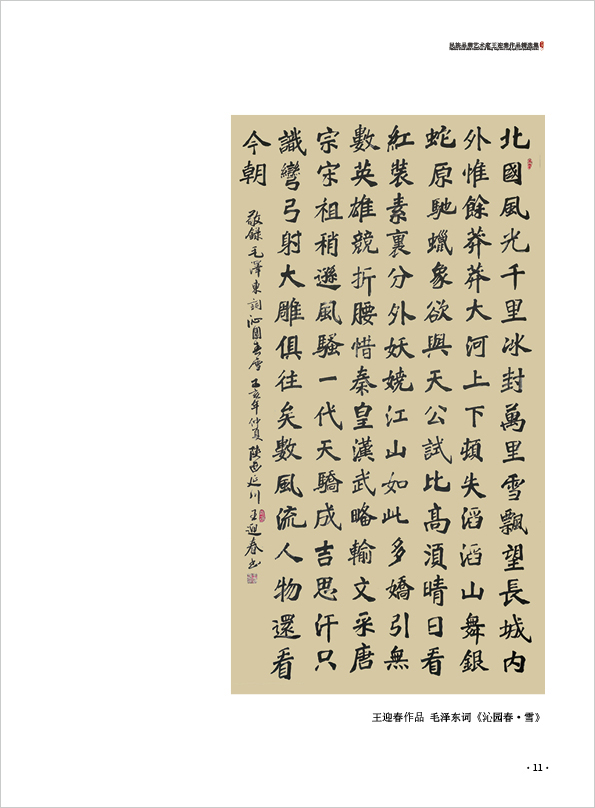 民族品牌艺术家王迎春作品精选集
北國風光千里冰封萬里雪飄望長城内
外惟餘莽莽大河上下頓失滔滔山舞銀
蛇原馳蠟象欲與天公試比高湏晴日看
紅裝素裏分外妖嬈江山如此多嬌引無
數英雄競折腰惜秦皇漢武略輸文采唐
宗宋祖稍遜風騷一代天驕成吉思汗只
識彎弓射大雕俱往矣數風流人物還看
今朝
敬録毛澤東詞沁園春雪己亥年仲夏陝西延川王迎春书
王迎春作品 毛泽东词《沁园春·雪》
·11·